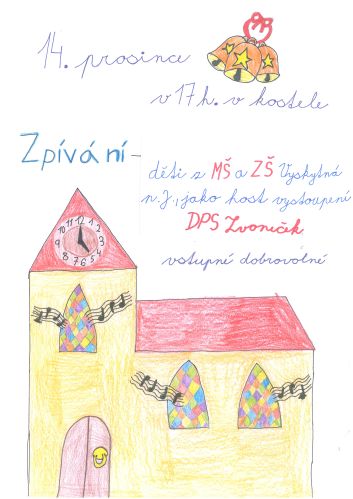 14. prosince
v 17 h. v kostele
Zpívání -
děti z MŠ a ZŠ Vyskytná
n. J., jako host vystoupení
DPS Zvoneček
vstupné dobrovolné
12 1 2 3 4 5 6 7 8 9 10 11